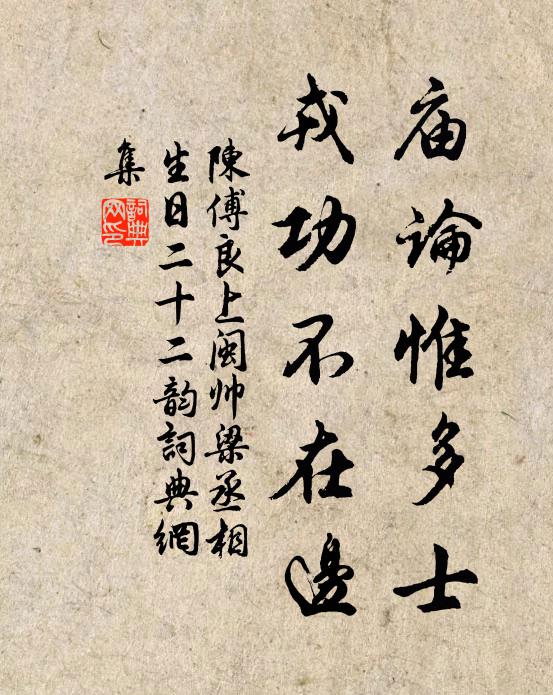 庙論惟多士
戎功不在邊
陳傅良上闽帅梁丞相
生日二十二韵詞典網
集
詞典
网印